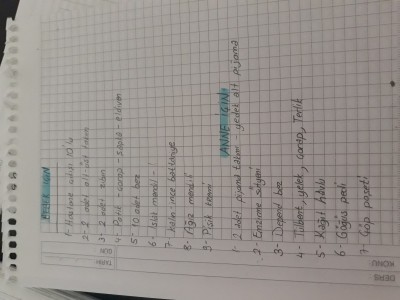 BEBEK İÇİN
1- Hastane çıkışı 10'lu
2- 2 adet alt üst takım
3- 2 adet zıbın
4- Patik - çorap - şapka - eldiven
5- 10 adet bez
6- Islak mendil -
7- kalın ince battaniye
8- Ağız mendili
9- Pişik kremi
ANNE İÇİN
1- 2 adet pijama takımı - yedek alt pijama
2- Emzirme sütyeni
3- Depend bez
4- Tülbent, yelek, çorap, Terlik
5- Kağıt havlu
6- Göğüs pedi
7- Çöp poşeti
TARİH
GÜN
DERS
KONU